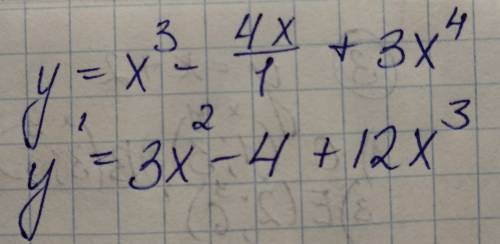 y = x³ - 4x/1 + 3x⁴
y' = 3x² - 4 + 12x³